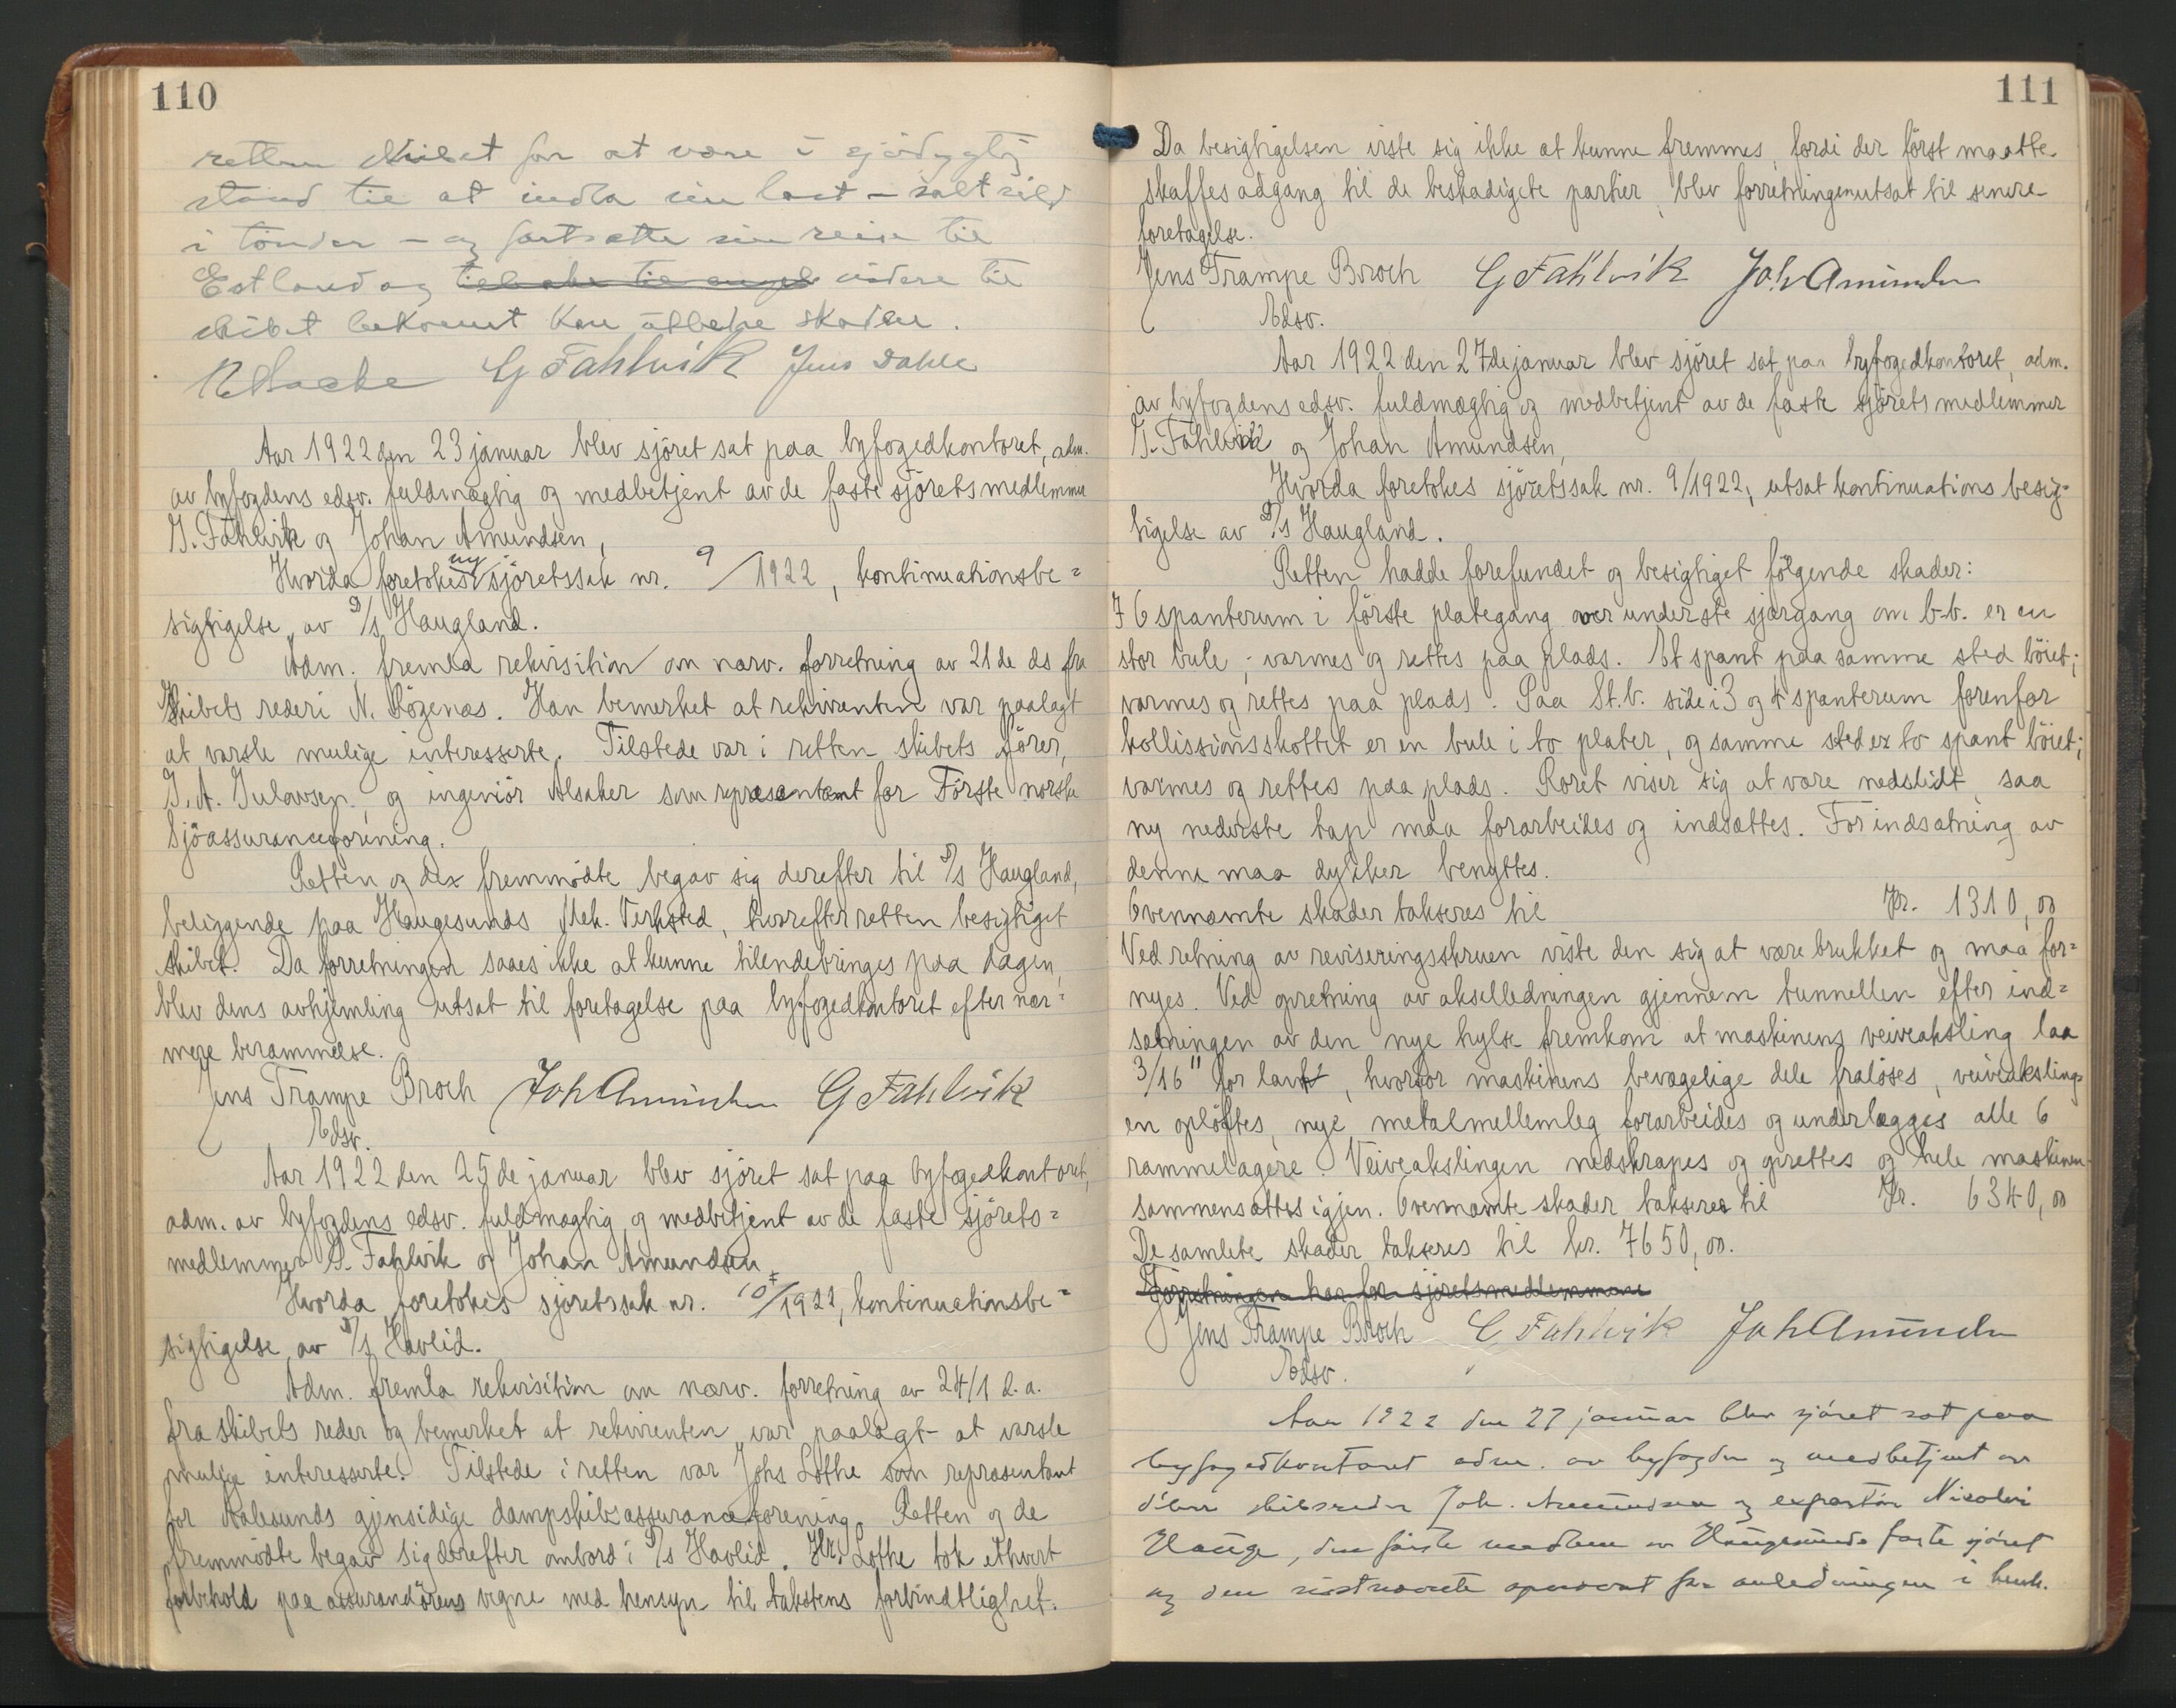 110
retten skibet for at være i sjødygtig
stand til at indta sin last - salt sild
i tönder - og fortsætte sin reise til
Estland og videre til
skibet bekvemt kan utbedre skaden.
G Fahlvik Jens Dahle
Aar 1922 den 23 januar blev sjöret sat paa byfogedkontoret, adm.
av byfogdens edsv. fuldmægtig og medbetjent av de faste sjöretsmedlemmer
G. Fahlvik og Johan Amundsen,
Hvorda foretokes ny sjöretssak nr. 9/1922, kontinuationsbe=
sigtigelse av D/S Haugland.
Adm. fremla rekvisition om nærv. forretning av 21de ds fra
skibets rederi N. Rögenæs. Han bemerket at rekvirenten var paalagt
at varsle mulige interesserte. Tilstede var i retten skibets förer,
og ingeniör Alsaker som repræsentant for Förste norske
Sjöassuranceforening.
Retten og de fremmödte begav sig derefter til D/S Haugland,
beliggende paa Haugesunds Mek. Verksted, hvorefter retten besigtiget
skibet. Da forretningen saaes ikke at kunne tilendebringes paa dagen,
blev dens avhjemling utsat til foretagelse paa byfogedkontoret efter nær=
mere berammelse.
Jens Trampe Broch Joh Amundsen G Fahlvik
Edsv.
Aar 1922 den 25de januar blev sjöret sat paa byfogedkontoret,
adm. av byfogdens edsv. fuldmægtig og medbetjent av de faste sjörets=
medlemmer G. Fahlvik og Johan Amundsen
Hvorda foretokes sjöretssak nr. 10/1922, kontinuationsbe=
sigtigelse av D/S Havlid.
Adm. fremla rekvisition om nærv. forretning av 24/1 d.a.
fra skibets reder og bemerket at rekvirenten var paalagt at varsle
mulige interesserte. Tilstede i retten var Johs Lothe som repræsentant
for Aalesunds gjensidige dampskibsassuranceforening. Retten og de
fremmödte begav sig derefter ombord i D/S Havlid. Hr. Lothe tok ethvert
forbehold paa assurandörens vegne med hensyn til takstens forbindtlighet.
111
Da besigtigelsen viste sig ikke at kunne fremmes, fordi der först maatte
skaffes adgang til de beskadigete partier, blev forretningen utsat til senere
foretagelse.
Jens Trampe Broch G Fahlvik Joh Amundsen
Edsv.
Aar 1922 den 27de januar blev sjöret sat paa byfogedkontoret, adm.
av byfogdens edsv. fuldmægtig og medbetjent av de faste sjöretsmedlemmer
G. Fahlvik og Johan Amundsen,
Hvorda foretokes sjöretssak nr. 9/1922, utsat kontinuations besig=
tigelse av D/S Haugland.
Retten hadde forefundet og besigtiget fölgende skader:
I 6 spanterum i förste plategang over underste sjærgang om b-b. er en
stor bule; varmes og rettes paa plads. Et spant paa samme sted böiet;
varmes og rettes paa plads. Paa St.b. side i 3 og 4 spanterum forenfor
kollissionsskottet er en bule i to plater, og samme sted er to spant böiet;
varmes og rettes paa plads. Roret viser sig at være nedslidt, saa
ny nederste tap maa forarbeides og indsættes. For indsætning av
denne maa dykker benyttes.
Ovennævnte skader takseres til Kr. 1310,00
Ved retning av reviseringsskruen viste den sig at være brukket og maa for=
nyes. Ved opretning av akselledningen gjennem tunnellen efter ind=
sætningen av den nye hylse fremkom at maskinens veiveaksling laa
3/16" for lavt, hvorfor maskinens bevægelige dele fralöses, veiveaksling=
en oplöftes, nye metalmellemleg forarbeides og underlægges alle 6
rammelagere. Veiveakslingen nedskrapes og oprettes og hele maskinen
sammensættes igjen. Ovennævnte skader takseres til Kr. 6340,00
De samlete skader takseres til kr. 7650,00.
Forretningen har for sjöretsmedlemmene
Jens Trampe Broch G Fahlvik Joh Amundsen
Edsv.
Aar 1922 den 27 januar blev sjöret sat paa
byfogedkontoret adm. av byfogden og medbetjent av
d'hrr skibsreder Joh. Amundsen og exportör Nicolai
Hauge, den förste medlem av Haugesunds faste sjöret
og den sistnævnte opnævnt for anledningen i henh.